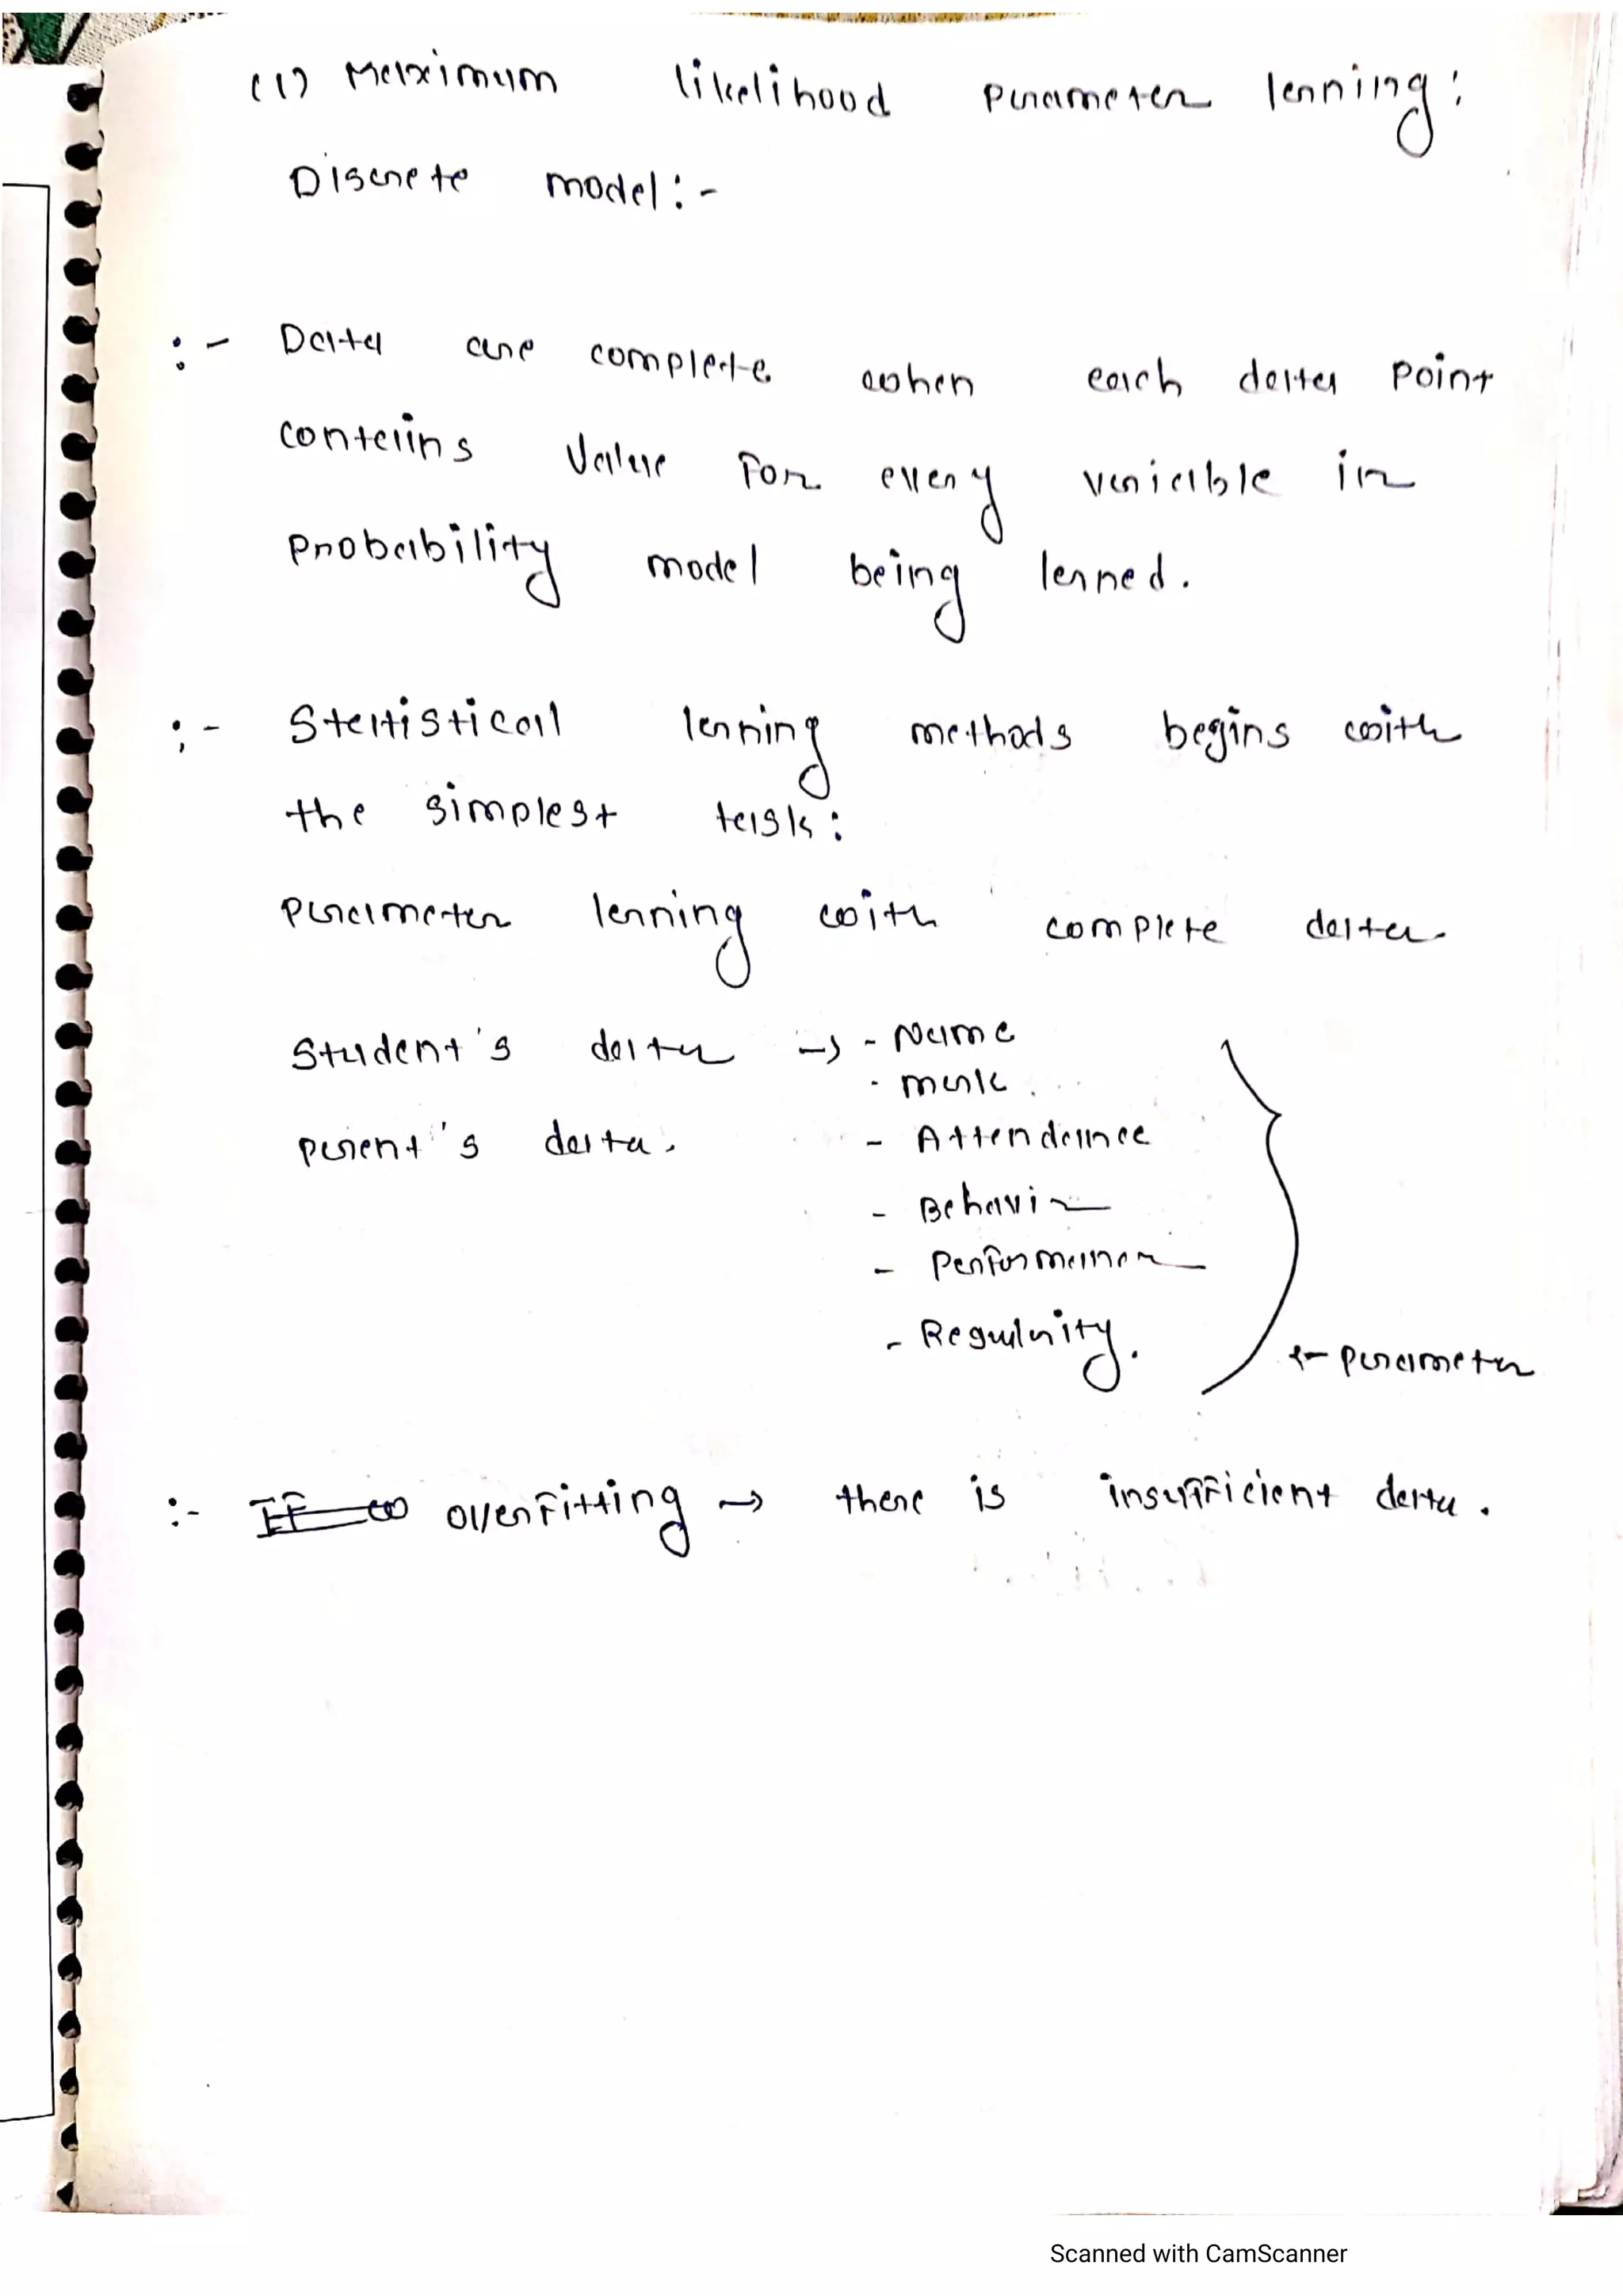 (1) Maximum likelihood parameter lerning:
Discrete model:-
:- Data are complete when each data point
contains value for every variable in
probability model being lerned.
:- Statistical lerning methods begins with
the simplest task:
parameter lerning with complete data.
Student's data → - Name
- mark.
parent's data. - Attendance
- Behavior
- Performance
- Regularity.
← parameter
:- If overfitting → there is insufficient data.
Scanned with CamScanner